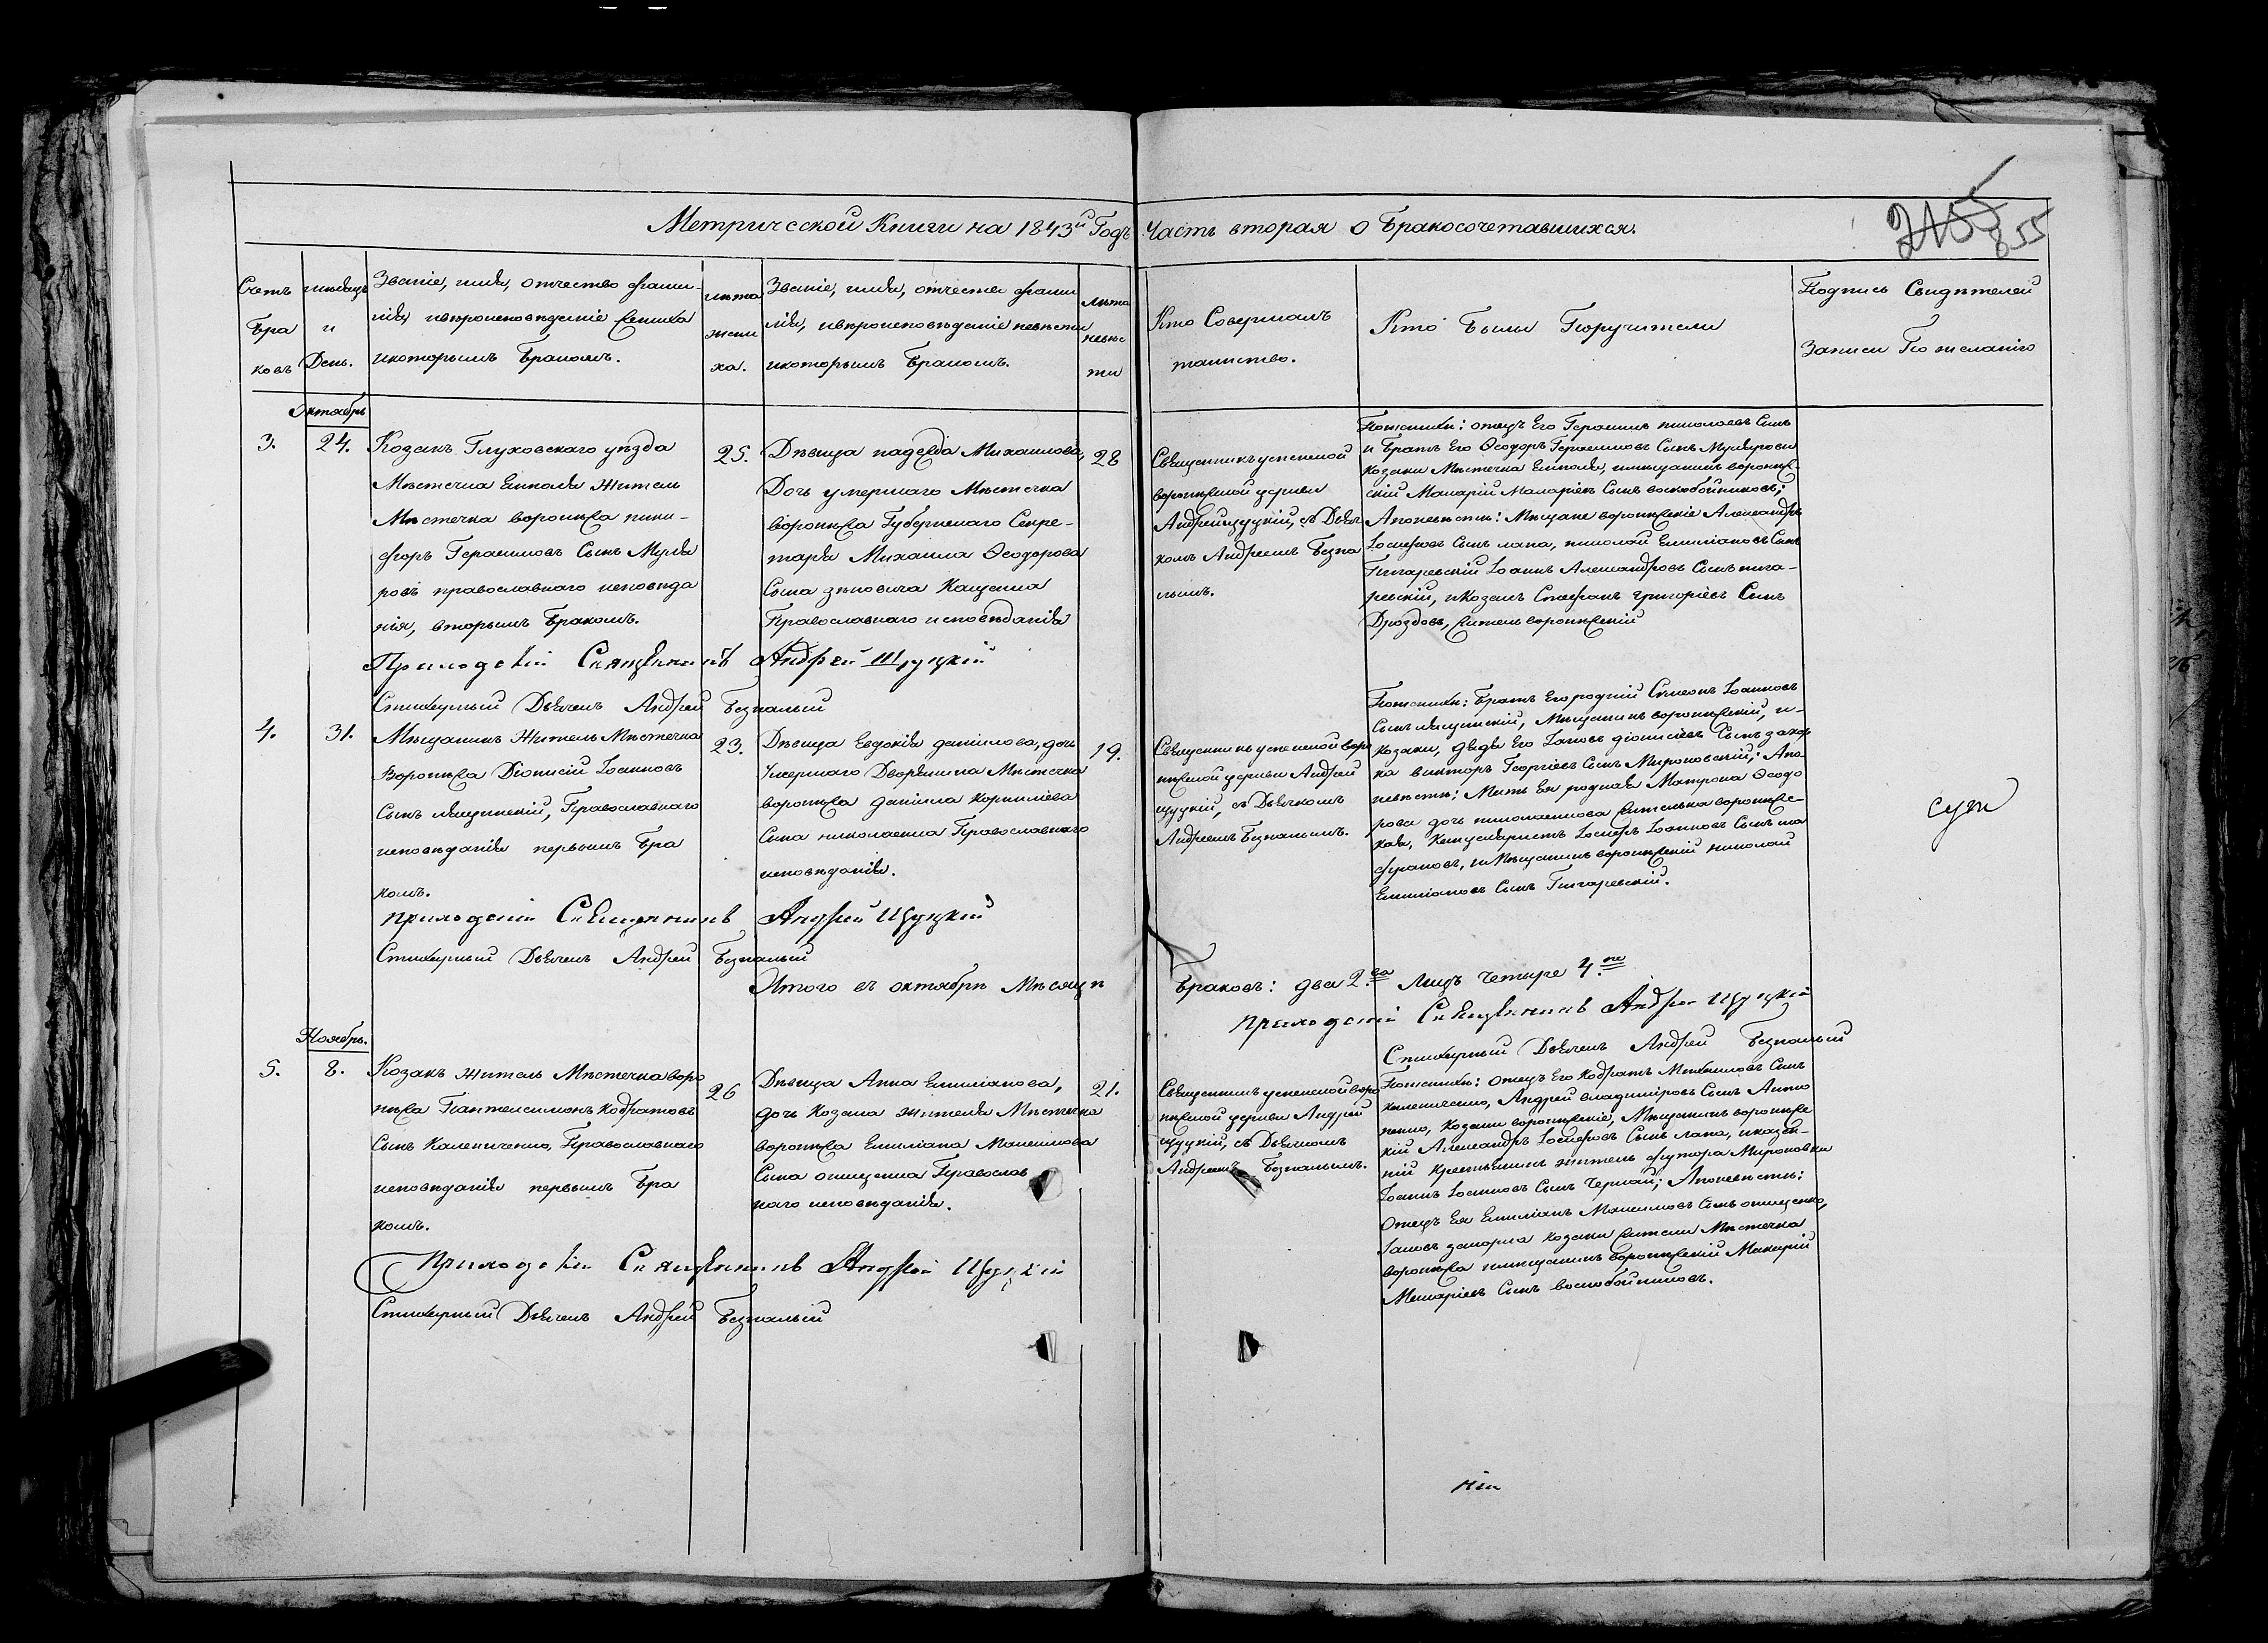 Метрической Книги на 1843й Годъ Часть вторая о Бракосочетавшихся.
855
Счетъ Бра ковъ
мѣсяцъ и День.
Званіе, имя, отчество фами-
лія и вѣроисповѣданіе жениха
и которымъ Бракомъ.
лѣта жени ха.
Званіе, имя, отчество фами
лія, и вѣроисповѣданіе невѣсты
и которымъ Бракомъ.
лѣта невѣс ты
Кто Совершалъ
таинство.
Кто Были Поручители
Подпись Свидѣтелей
Записи По желанію
Октябрь
3.
24.
Козакъ Глуховскаго уѣзда
Мѣстечка Ямполя житель
Мѣстечка воронежа ники-
форъ Герасимовъ Сынъ
ровъ православнаго исповѣда
нія, вторымъ Бракомъ.
25.
Дѣвица надежда Михаилова,
Дочь умершаго Мѣстечка
воронежа Губернскаго Секре-
таря Михаила Ѳеодорова
Сына зѣновича Кащенка
Православнаго исповѣданія
28
Священникъ успенской
воронежской церкви
Андрей щуцкій, съ Дьяч
комъ Андреемъ Безпа
лымъ.
По женихѣ: отецъ Его Герасимъ николаевъ Сынъ
и Братъ Его Ѳеодоръ Герасимовъ Сынъ
козаки Мѣстечка Ямполя, и мѣщанинъ воронеж-
скій Макарій Макаріевъ Сынъ воскобойниковъ;
А по невѣстѣ: Мѣщане воронежскіе Александръ
Іосифовъ Сынъ лапа, николай Емиліановъ Сынъ
Пигаревскій Іоаннъ Александровъ Сынъ пига-
ревскій, и Козакъ Стефанъ григоріевъ Сынъ
Дроздовъ, житель воронежскій
Приходскій Священникъ Андрей Щуцкій
Стихарный Дьячекъ Андрей Безпалый
4.
31.
Мѣщанинъ житель Мѣстечка
Воронежа Діонисій Іоанновъ
Сынъ Православнаго
исповѣданія первымъ Бра
комъ.
23.
Дѣвица Евдокія даніилова, дочь
Умершаго Дворянина Мѣстечка
воронежа даніила Корниліева
Сына николаенка Православнаго
исповѣданія.
19.
Священникъ успенской воро
нежской церкви Андрей
щуцкій, съ Дьячкомъ
Андреемъ Безпалымъ.
По женихѣ: Братъ Его родній Симеонъ Іоанновъ
Сынъ Мѣщанинъ воронежскій, и-
козаки, дядя Его Іаковъ діонисіевъ Сынъ запор
ка викторъ Георгіевъ Сынъ Мироновскій; А по
невѣстѣ: Мать Ея родная Матрона Ѳеодо
рова дочь николаенкова жителька воронежс-
кая, Канцеляристъ Іосифъ Іоанновъ Сынъ
и Мѣщанинъ воронежскій николай
Емиліановъ Сынъ Пигаревскій.
Приходскій Священникъ Андрей Щуцкій
Стихарный Дьячекъ Андрей Безпалый
Итого въ октябрѣ Мѣсяцѣ Браковъ: два 2.ва Лицъ Четыре 4.ре
Приходскій Священникъ Андрей Щуцкій
Стихарный Дьячекъ Андрей Безпалый
Ноябрь.
5.
8.
Козакъ житель Мѣстечка воро
нежа Пантелеимонъ Кодратовъ
Сынъ Калениченко, Православнаго
исповѣданія первымъ Бра
комъ.
26
Дѣвица Анна Емиліанова,
дочь Козака жителя Мѣстечка
воронежа Емиліана Максимова
Сына онищенка Православ
наго исповѣданія.
21.
Священникъ успенской воро
нежской церкви Андрей
щуцкій, съ Дьячкомъ
Андреемъ Безпалымъ.
По женихѣ: отецъ Его Кодратъ Сынъ
калениченко, Андрей владиміровъ Сынъ Анто
ненко, Козаки воронежскіе, Мѣщанинъ воронежс
кій Александръ Іосифовъ Сынъ лапа, и казен-
ній крестьянинъ житель футора Мироновки
Іоаннъ Іоанновъ Сынъ Чернай; А по невѣстѣ:
Отецъ Ея Емиліанъ Максимовъ Сынъ онищенко,
Іаковъ запорка Козаки жители Мѣстечка
воронежа и мѣщанинъ воронежскій Макарій
Макаріевъ Сынъ воскобойниковъ.
Приходскій Священникъ Андрей Щуцкій
Стихарный Дьячекъ Андрей Безпалый